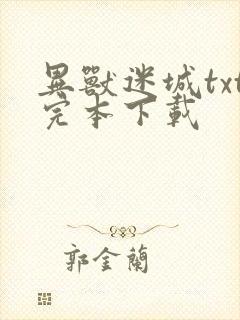 異獸迷城txt
完本下載
郭金蘭